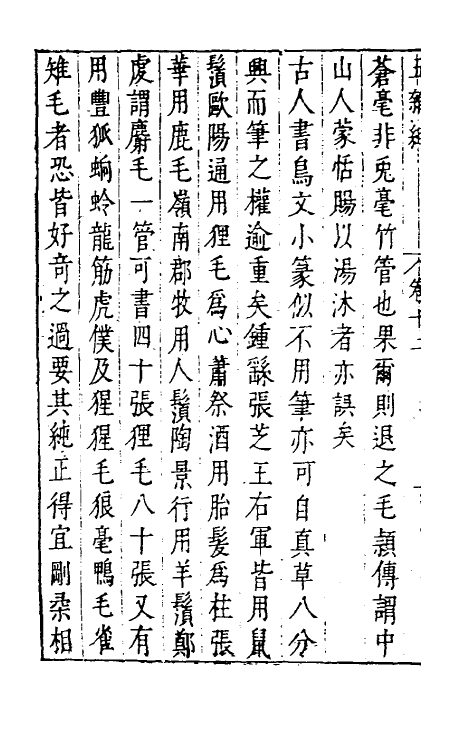 五雜組 卷十二
蒼毫非兎毫竹管也果爾則退之毛頴傳謂中
山人蒙恬賜以湯沐者亦誤矣
古人書鳥文小篆似不用筆亦可自真草八分
興而筆之權逾重矣鍾繇張芝王右軍皆用鼠
鬚歐陽通用狸毛爲心蕭祭酒用胎髮爲柱張
華用鹿毛嶺南郡牧用人鬚陶景行用羊鬚鄭
虔謂麝毛一管可書四十張狸毛八十張又有
用豐狐蚼蛉龍筋虎僕及猩猩毛狼毫鴨毛雀
雉毛者恐皆好竒之過要其純正得宜剛柔相